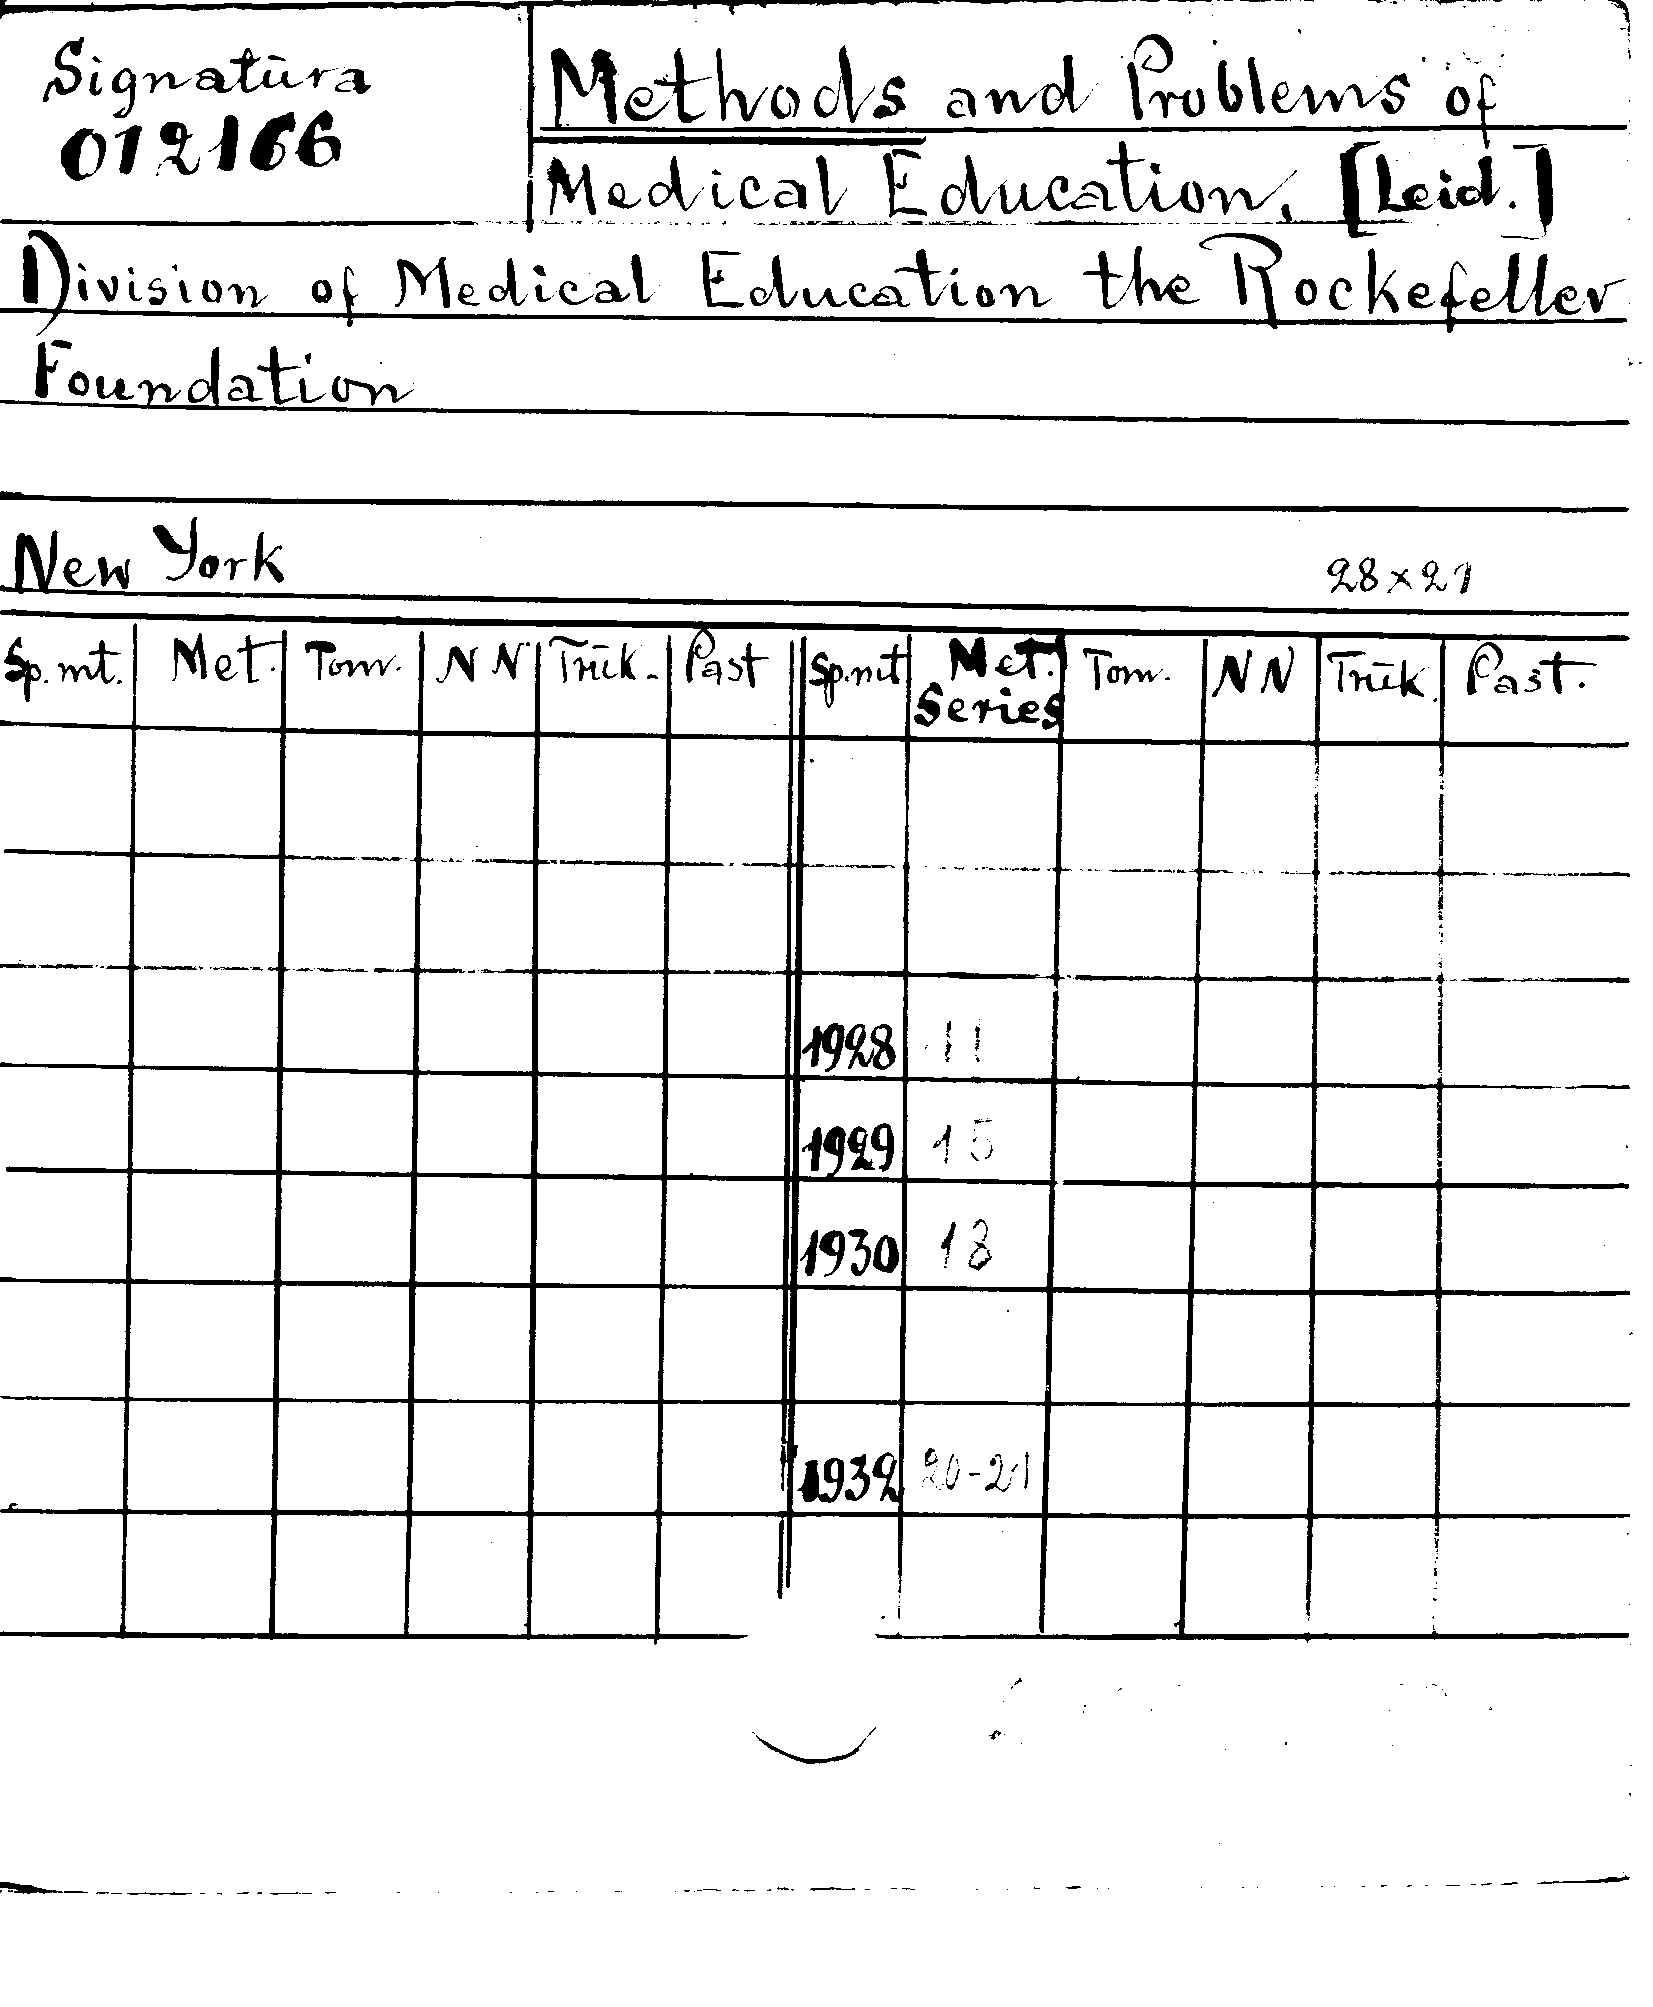 Signatūra
012166
Methods and Problems of
Medical Education. [Leid.]
Division of Medical Education the Rockefeller
Foundation
New York 28×21
Sp. mt. Met. Tom. NN Trūk. Past Sp. mt Met. Series Tom. NN Trūk. Past.
1928 11
1929 15
1930 18
1932 20-21